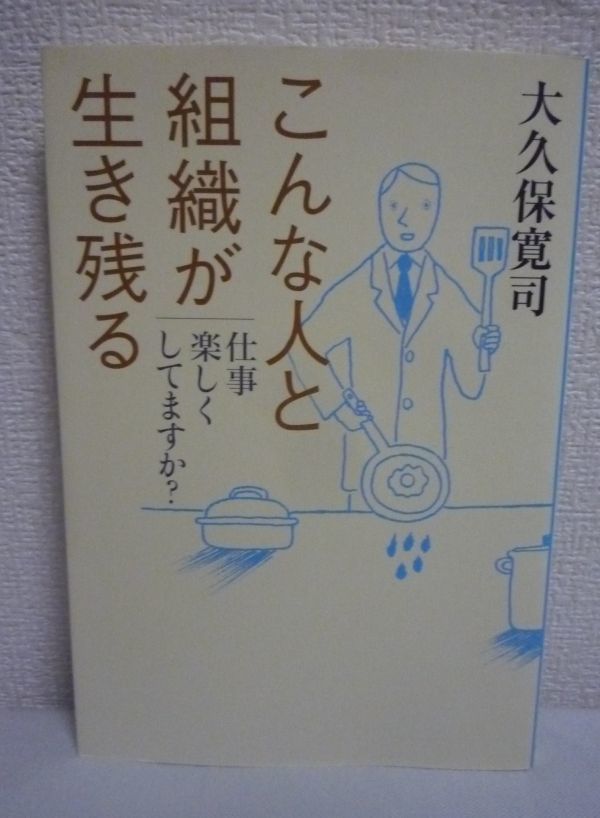 大久保寛司
こんな人と
組織が
生き残る
仕事
楽しく
してますか?